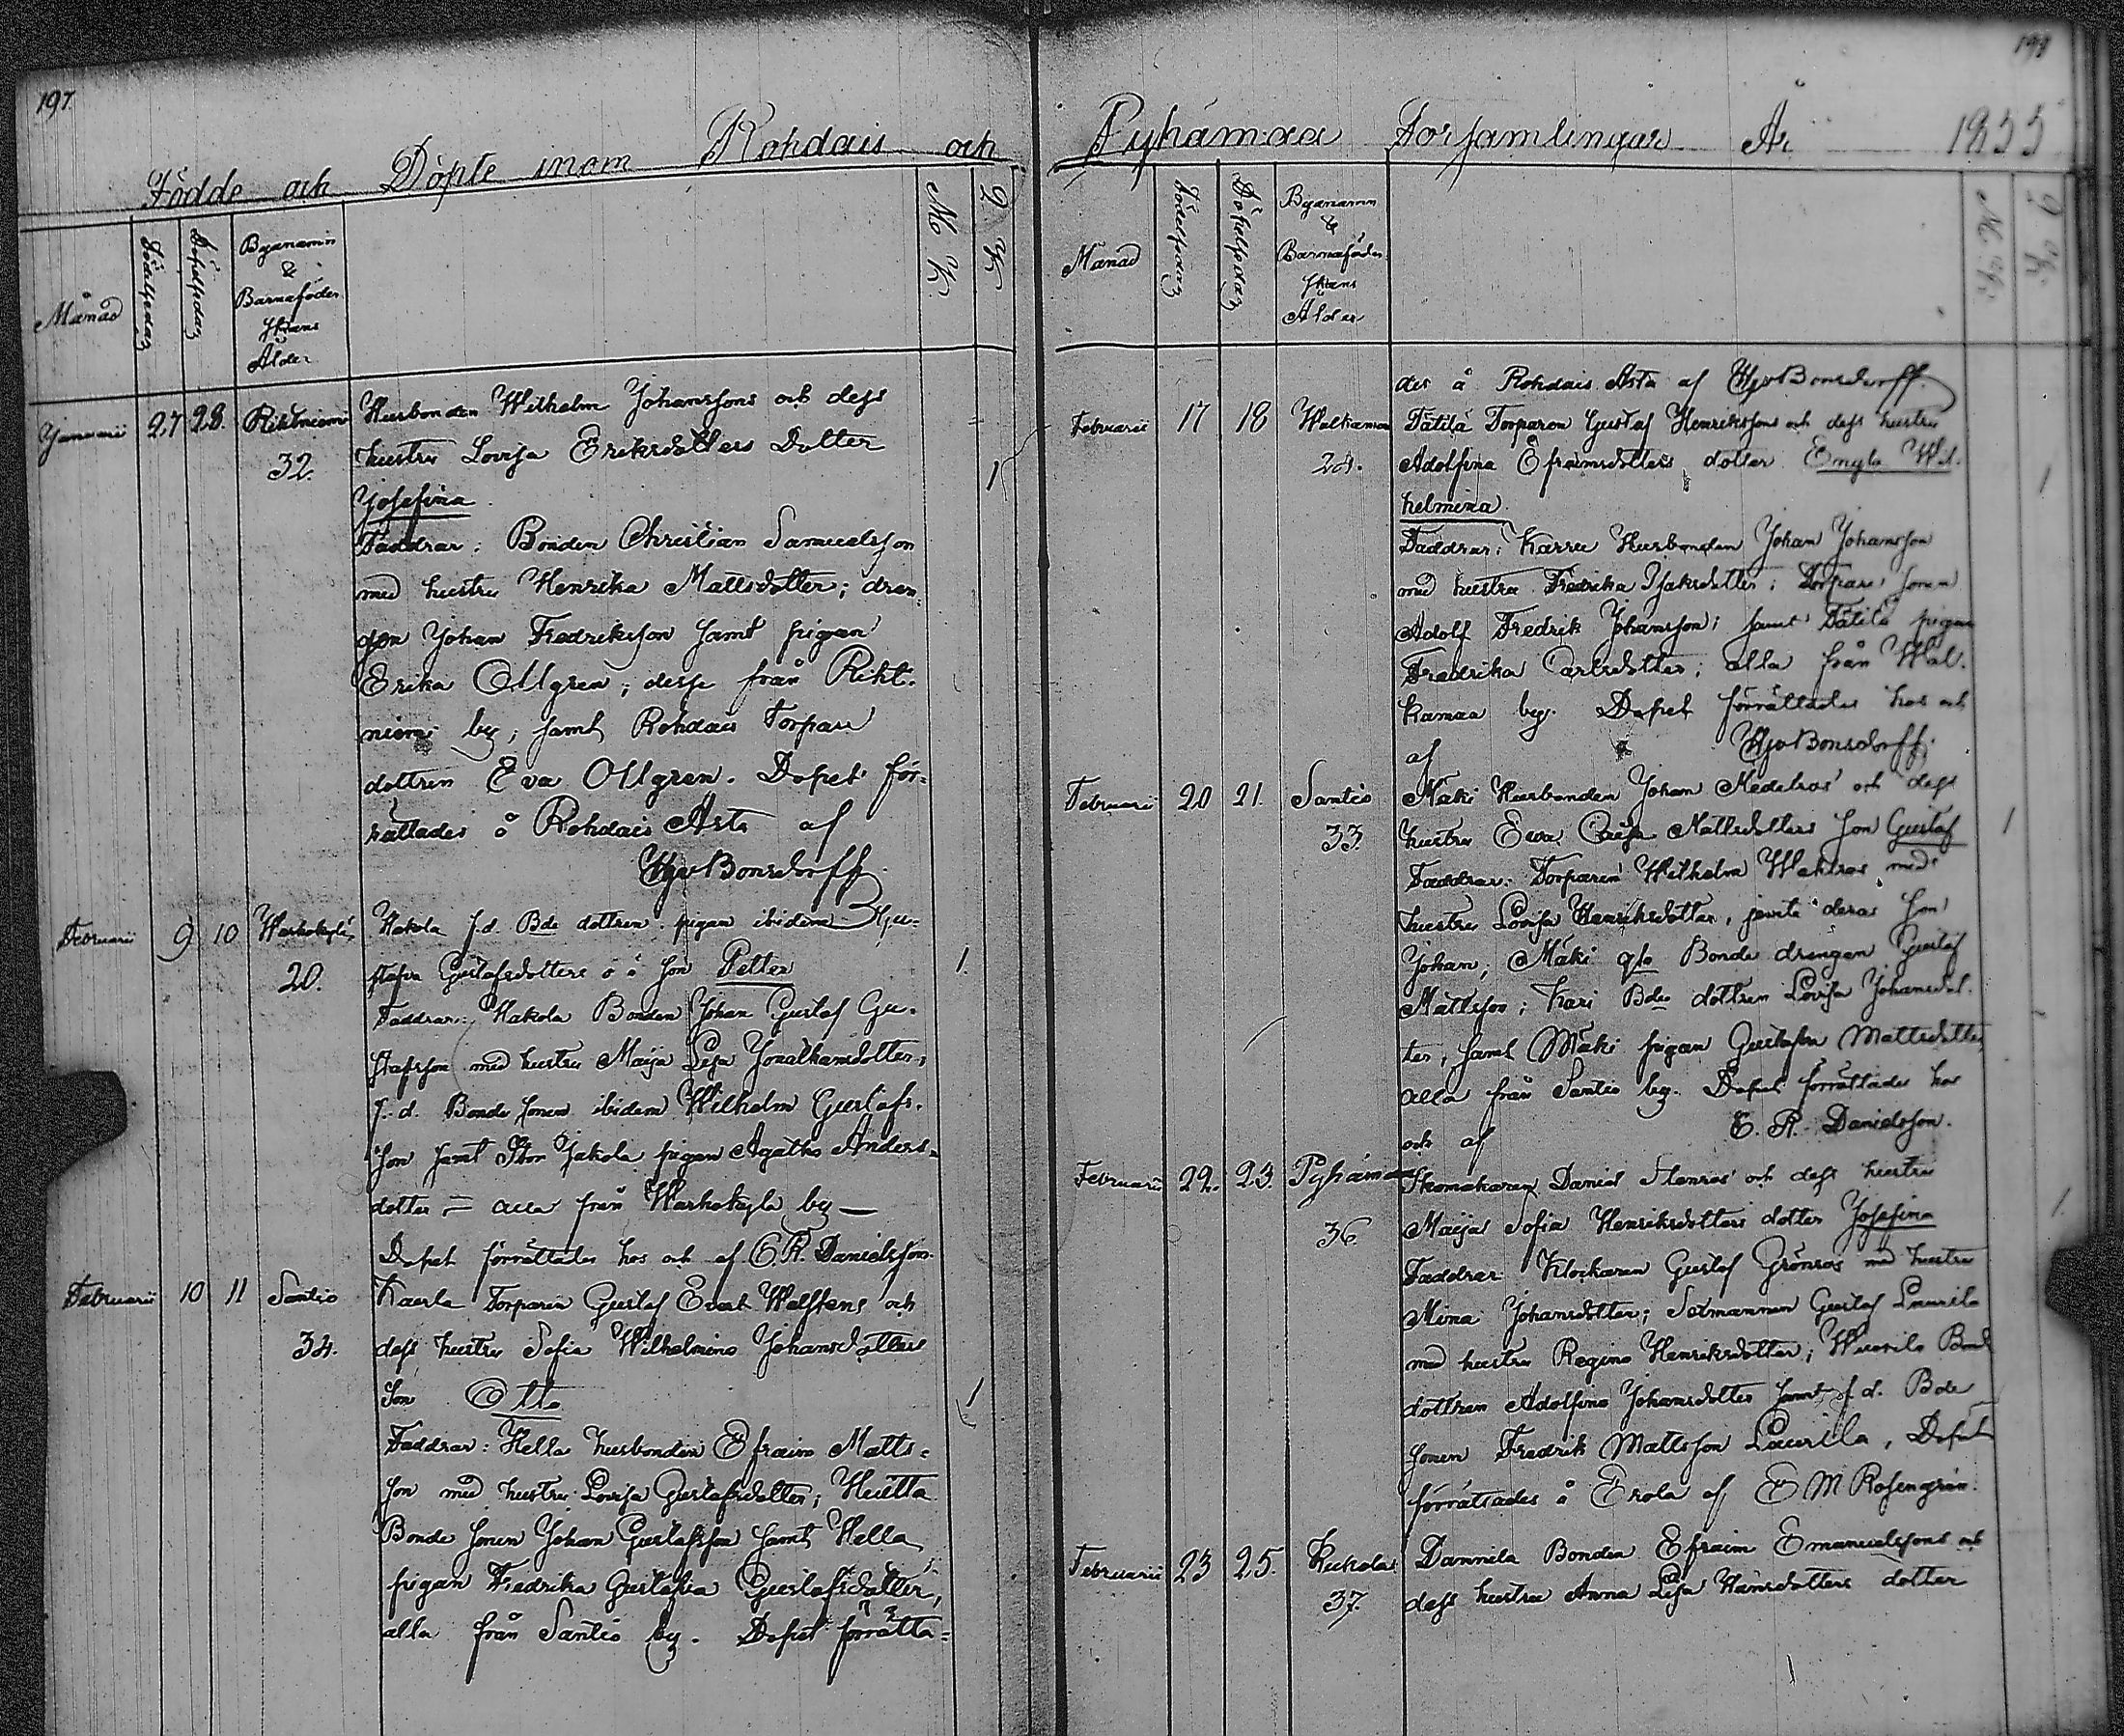 197
Födde och Döpte inom Rohdais och
Månad
Födelsedag
Döpelsedag
Byanamn
&
Barnaföder
skans
Ålder
M. K.
Q. K.
Januarii 27 28. Rihtniemi Husbonden Wilhelm Johanssons och dess
32. hustru Lovisa Eriksdotters Dotter
Josefina 1
Faddrar: Bonden Christian Samuelsson
med hustru Henrika Mattsdotter; drän-
gen Johan Fredriksson samt pigan
Erika Ollgren; desse från Riht-
niemi by; samt Rohdais Torpare
dottren Eva Ollgren. Dopet för-
rättades å Rohdais Asta af
HjvBonsdorff.
Februarii 9 10 Warhokylä Hakola f.d. Bde dottren pigan ibidem Gu-
20. stafva Gustafsdotters o ä son Petter 1.
Faddrar: Hakola Bonden Johan Gustaf Gu-
stafsson med hustru Maija Lisa Jonathansdotter;
f. d. Bonde sonen ibidem Wilhelm Gustafs-
son samt Stor Jakola pigan Agatha Anders-
dotter; = alla från Warhokylä by —
Dopet förrättades hos och af E. R. Danielsson.
Februarii 10 11 Santio Kaerla Torparen Gustaf Evert Wallstens och
34. dess hustru Sofia Wilhelmina Johansdotters
son Otto 1
Faddrar: Hella husbonden Efraim Matts-
son med hustru Lovisa Gustafsdotter; Huitta
Bonde sonen Johan Gustafsson samt Hella
pigan Fredrika Gustafva Gustafsdotter,
alla från Santio by. Dopet förrätta-
198
Pyhämaa Församlingar År 1855
Månad
Födelsedag
Döpelsedag
Byanamn
&
Barnaföder
skans
Ålder
M. K.
Q. K.
des å Rohdais Asta af HjvBonsdorff.
Februarii 17 18 Walkamaa Tätilä Torparen Gustaf Henrikssons och dess hustru
Adolfina Efraimsdotters dotter Emgla Wil- 1
helmina.
Faddrar: Karru Husbonden Johan Johansson
med hustru Fredrika Isaksdotter; Torpare sonen
Adolf Fredrik Johansson; samt Tätilä pigan
Fredrika Carlsdotter; alla från Wal-
kamaa by. Dopet förrättades hos och
af HjvBonsdorff.
Februarii 20 21. Santio Mäki Husbonden Johan Medelros' och dess
33. hustru Eva Caisa Mattsdotters son Gustaf 1
Faddrar: Torparen Wilhelm Wahlros med
hustru Lovisa Henriksdotter, jemte deras son
Johan; Mäki gla Bonde drängen Gustaf
Mattsson; Kari Bde dottren Lovisa Johansdot-
ter, samt Mäki pigan Gustafva Mattsdotter,
alla från Santio by. Dopet förrättades hos
och af E. R. Danielsson.
Februarii 22. 23. Pyhämaa Skomakaren Daniel Stenros' och dess hustru
36. Maija Sofia Henriksdotters dotter Josefina 1.
Faddrar: Klockaren Gustaf Grönros med hustru
Mina Johansdotter; Sotmannen Gustaf Laurila
med hustru Regina Henriksdotter; Wuorila Bonde
dottren Adolfina Johansdotter samt f. d. Bde
sonen Fredrik Mattsson Laurila, Dopet
förrättades å Erola af E M Rosengrén.
Februarii 23 25. Kukola Dannila Bonden Efraim Emanuelssons och
37. dess hustru Anna Lisa Hansdotters dotter